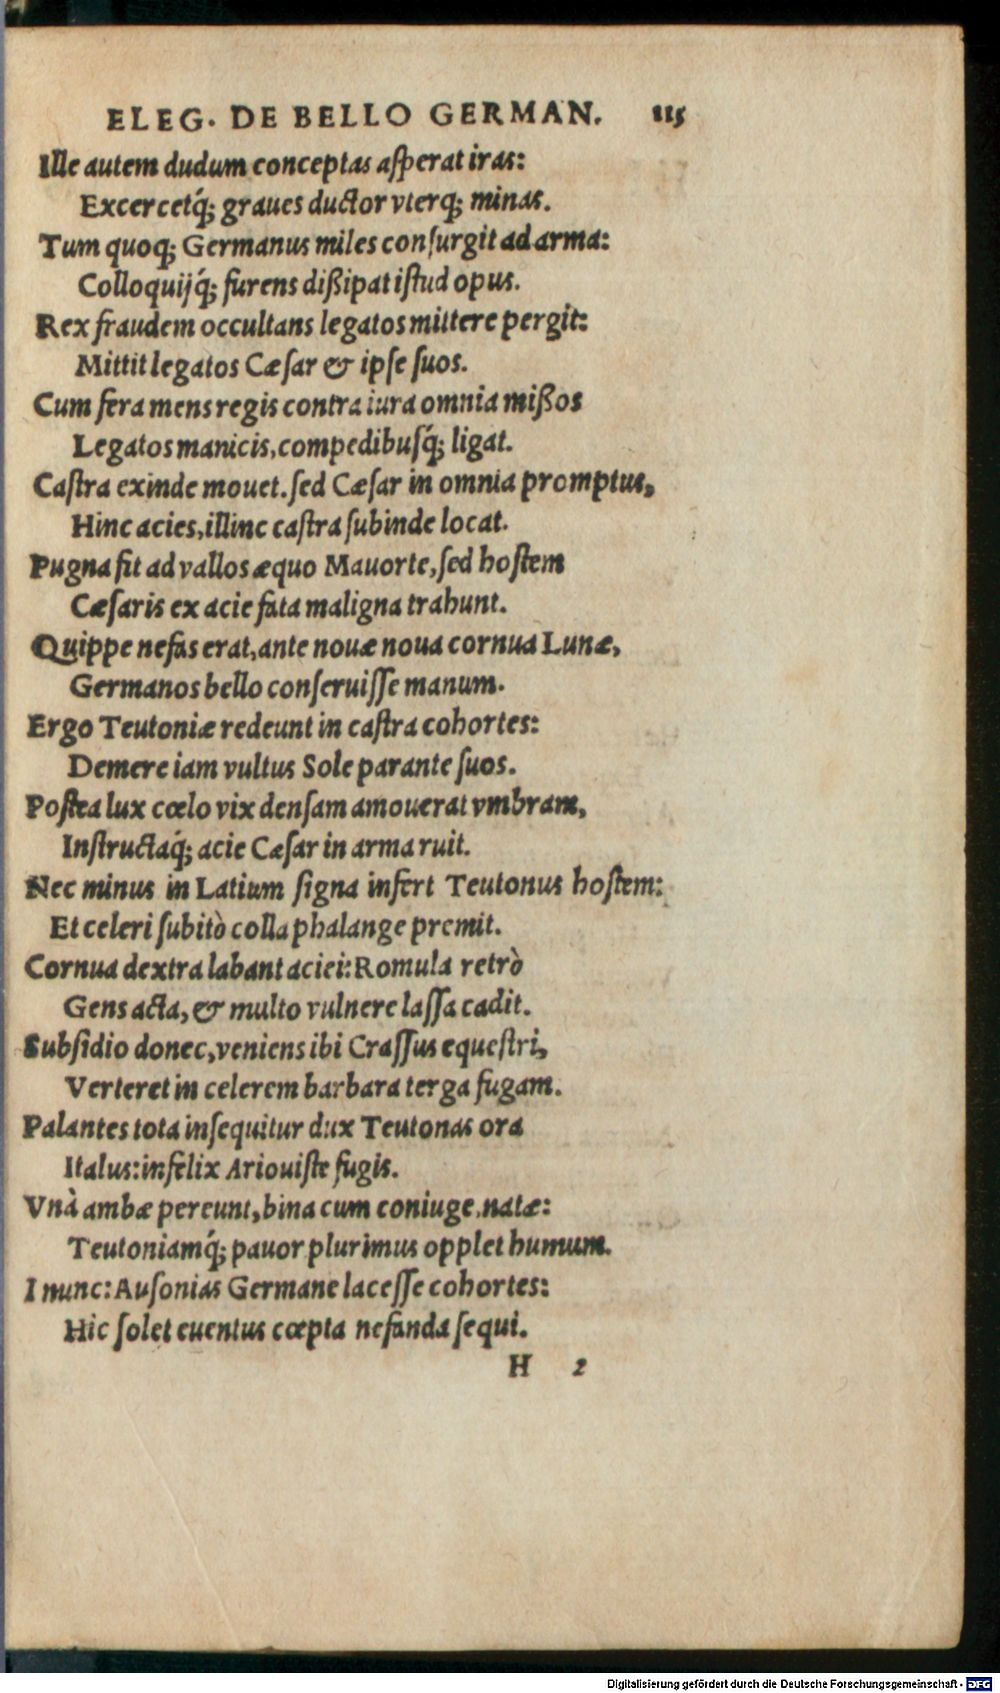 ELEG. DE BELLO GERMAN. 115
Ille autem dudum conceptas asperat iras:
Excercetq́; graues ductor vterq; minas.
Tum quoq; Germanus miles consurgit ad arma:
Colloquijq́; furens dißipat istud opus.
Rex fraudem occultans legatos mittere pergit:
Mittit legatos Cæsar & ipse suos.
Cum fera mens regis contra iura omnia mißos
Legatos manicis, compedibusq́; ligat.
Castra exinde mouet. sed Cæsar in omnia promptus,
Hinc acies, illinc castra subinde locat.
Pugna fit ad vallos æquo Mauorte, sed hostem
Cæsaris ex acie fata maligna trahunt.
Quippe nefas erat, ante nouæ noua cornua Lunæ,
Germanos bello conseruisse manum.
Ergo Teutoniæ redeunt in castra cohortes:
Demere iam vultus Sole parante suos.
Postea lux cœlo vix densam amouerat vmbram,
Instructaq́; acie Cæsar in arma ruit.
Nec minus in Latium signa infert Teutonus hostem:
Et celeri subitò colla phalange premit.
Cornua dextra labant aciei: Romula retrò
Gens acta, & multo vulnere lassa cadit.
Subsidio donec, veniens ibi Crassus equestri,
Verteret in celerem barbara terga fugam.
Palantes tota insequitur dux Teutonas ora
Italus: infelix Ariouiste fugis.
Vnà ambæ pereunt, bina cum coniuge, natæ:
Teutoniamq́; pauor plurimus opplet humum.
I nunc: Ausonias Germane lacesse cohortes:
Hic solet euentus cœpta nefanda sequi.
H 2
Digitalisierung gefördert durch die Deutsche Forschungsgemeinschaft - DFG